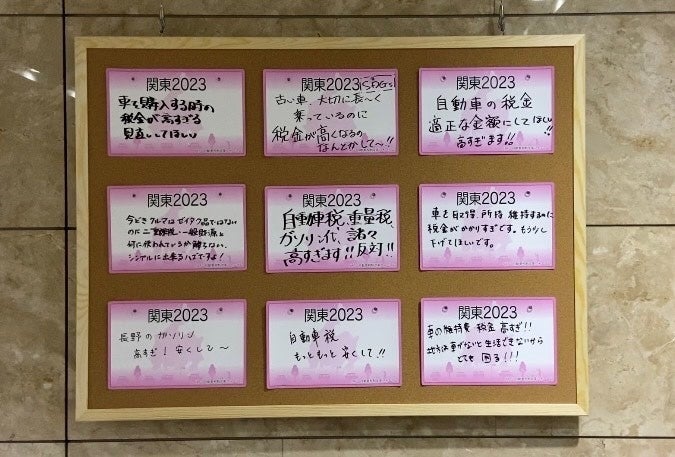 関東2023
車を購入する時の
税金が高すぎる
見直してほしい
関東2023
SDGs!
古い車、大切に長〜く
乗っているのに
税金が高くなるの
なんとかして〜!!
関東2023
自動車の税金
適正な金額にしてほしい!!
高すぎます!!
関東2023
今どきクルマはゼイタク品ではない
のに二重課税・一般財源と
何に使われているか解らない、
シンプルに出来るハズですよ!
関東2023
自動車税、重量税、
ガソリン代、諸々
高すぎます!!反対!!
関東2023
車を取得、所持、維持するのに
税金がかかりすぎです。もう少し
下げてほしいです。
関東2023
長野のガソリン
高すぎ!安くして〜
関東2023
自動車税
もっともっと安くして!!
関東2023
車の維持費 税金 高すぎ!!
地方は車がないと生活できないから
とても困る!!!